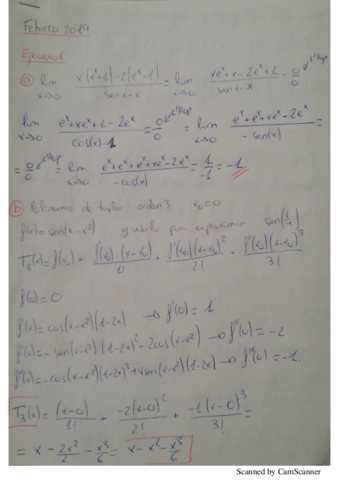 Febrero 2019
Ejercicio 1
a) lim x→0 x(eˣ+1)-2(eˣ-1) / senx-x = lim x→0 xeˣ+x-2eˣ+2 / senx-x = 0/0 L'Hop
lim x→0 eˣ+xeˣ+1-2eˣ / cos(x)-1 = 0/0 L'Hop = lim x→0 eˣ+eˣ+xeˣ-2eˣ / -sen(x) =
= 0/0 L'Hop = lim x→0 eˣ+eˣ+eˣ+xeˣ-2eˣ / -cos(x) = 1/-1 = -1
b) Polinomio de taylor orden 3 x₀=0
f(x)=sen(x-x²) y usarlo para aproximar sen(1/4)
T₃(x)=f(x₀)+ f'(x₀)(x-x₀)/1! + f''(x₀)(x-x₀)²/2! + f'''(x₀)(x-x₀)³/3!
f(0)=0
f'(x)=cos(x-x²)(1-2x) → f'(0)=1
f''(x)=-sen(x-x²)(1-2x)²-2cos(x-x²) → f''(0)=-2
f'''(x)=-cos(x-x²)(1-2x)³+4sen(x-x²)(1-2x) → f'''(0)=-1
T₃(x)= (x-0)/1! + -2(x-0)²/2! + -1(x-0)³/3! =
= x - 2x²/2 - x³/6 = x-x²-x³/6
Scanned by CamScanner